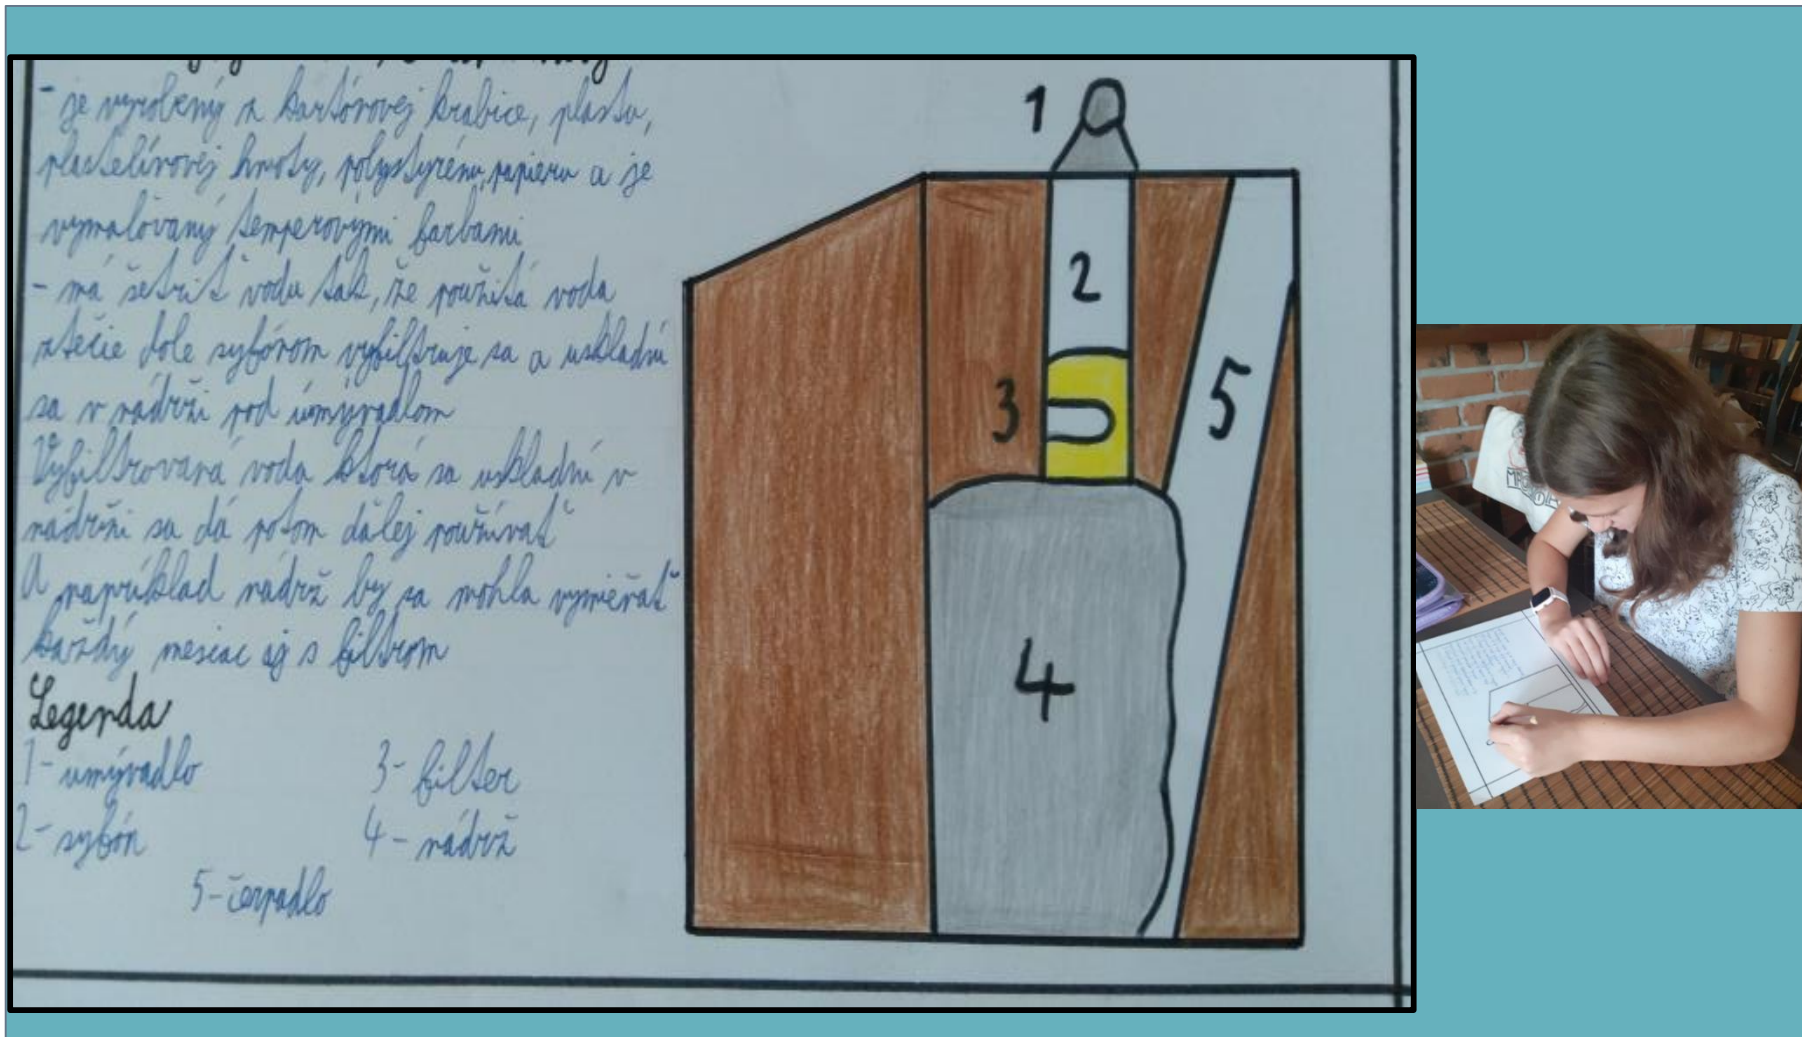 - je vyrobený z kartónovej krabice, plastu,
plastelínovej hmoty, polystyrénu, papieru a je
vymaľovaný temperovými farbami
- má šetriť vodu tak, že použitá voda
stečie dole syfónom vyfiltruje sa a uskladní
sa v nádrži pod úmývadlom
Vyfiltrovaná voda ktorá sa uskladní v
nádrži sa dá potom ďalej používať
A napríklad nádrž by sa mohla vymieňať
každý mesiac aj s filtrom
Legenda
1- umývadlo
3- filter
2- syfón
4- nádrž
5- čerpadlo
1
2
3
5
4